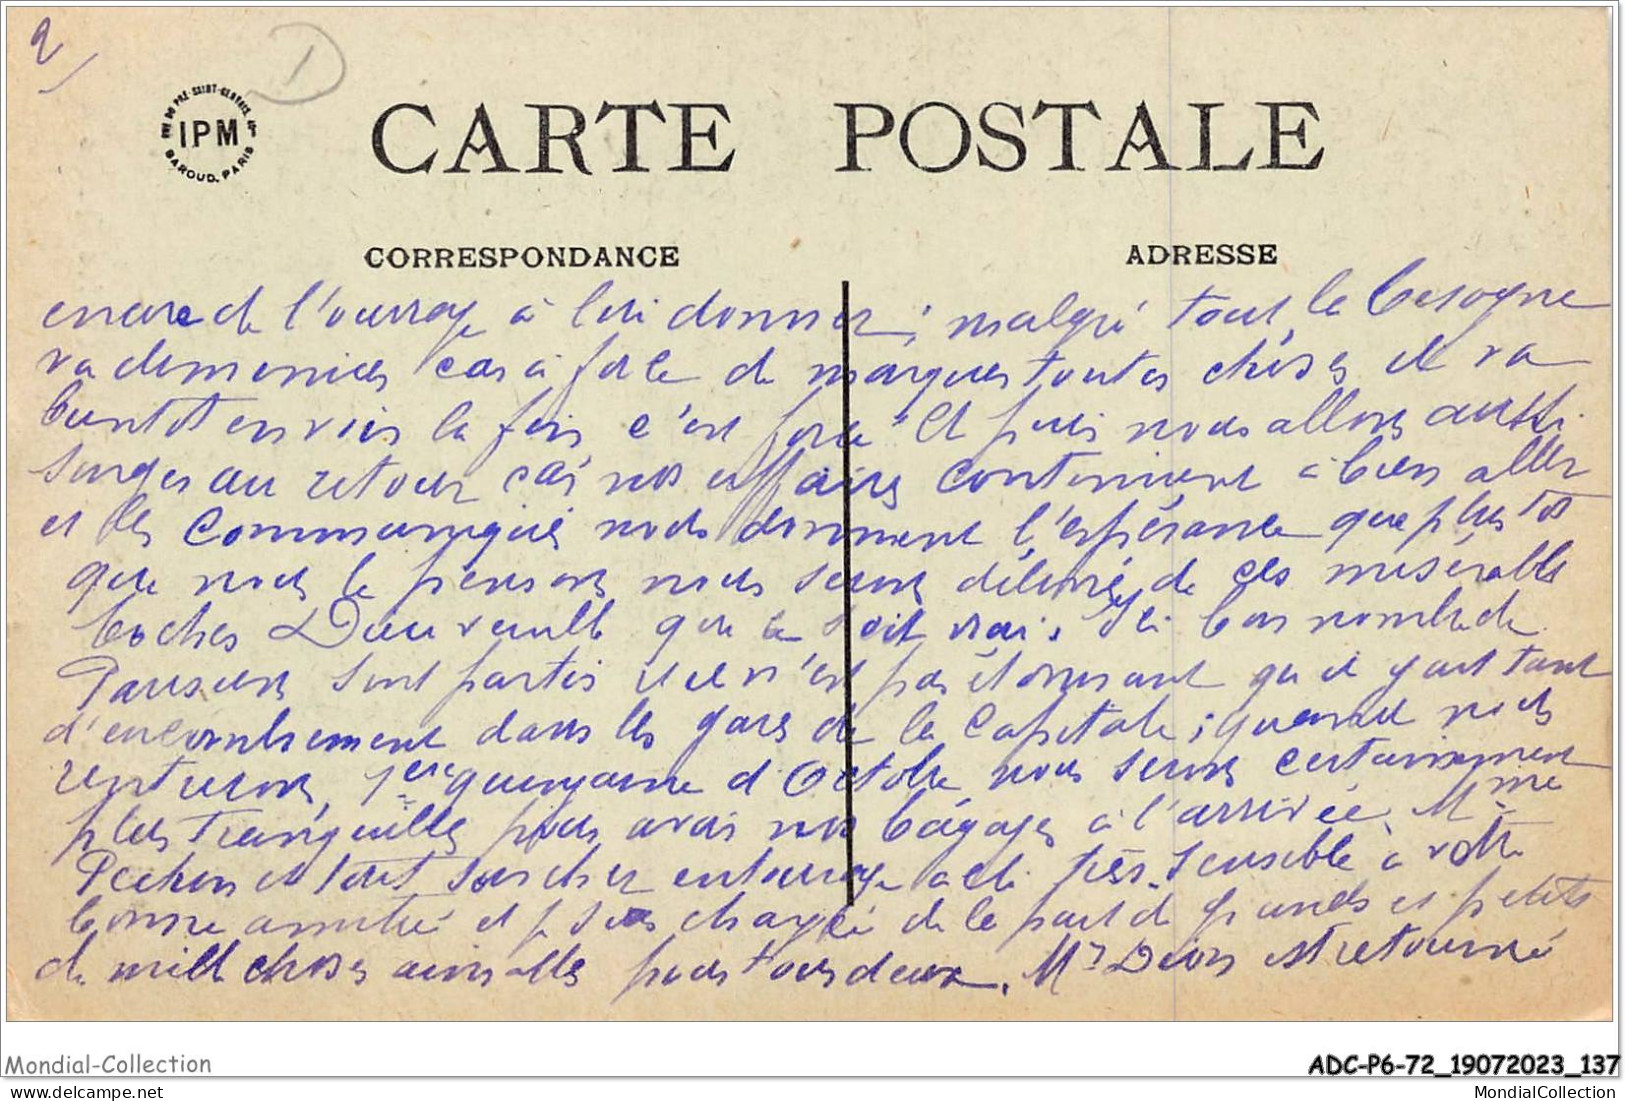 2
D
RUE DU PRÉ-SAINT-GERVAIS
IPM
BAROUD. PARIS
CARTE POSTALE
CORRESPONDANCE
ADRESSE
encore de l'ouvrage à lui donner ; malgré tout la besogne
va diminuer car à force de marques toutes choses et va
bientôt en voir la fin c'est forcé Et puis nous allons aussi
songer au retour car nos affaires continuent à bien aller
et les Communiqués nous donnent l'espérance que plus tôt
que nous le pensons nous serons délivrés de ces misérables
boches Dieu veuille que ce soit vrai. Ici bon nombre de
Parisiens sont partis et il n'est pas étonnant qu'il y ait tant
d'encombrement dans les gares de la Capitale ; quand nous
rentrerons, 1ère quinzaine d'Octobre nous serons certainement
plus tranquilles pour avoir nos bagages à l'arrivée. Mme
Pechon et tout son cher entourage a été très sensible à votre
bonne amitié et je suis chargé de la part de grands et petits
de mille choses aimables pour tous deux. Mr Dion est retourné
Mondial-Collection
ADC-P6-72_19072023_137
Mondial-Collection at delcampe.net
MondialCollection